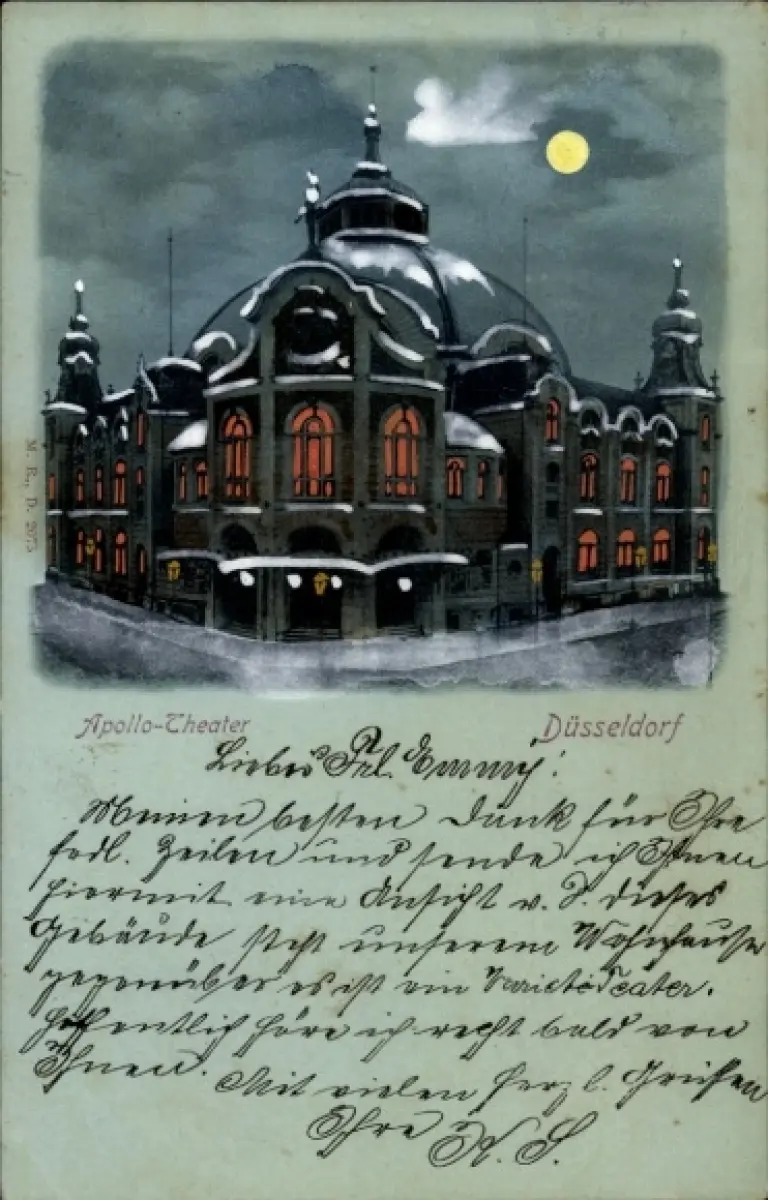 M. R., D. 2075
Apollo-Theater Düsseldorf
Liebes Frl. Emmy!
Meinen besten Dank für Ihre
frdl. Zeilen und sende ich Ihnen
hiermit eine Ansicht v. D. dieses
Gebäude steht unserem Wohnhause
gegenüber es ist ein Varieté Teater.
Hoffentlich höre ich recht bald von
Ihnen.
Mit vielen herzl. Grüßen
Ihre K. S.